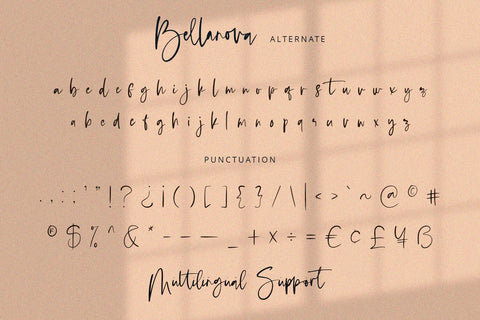 Bellanova ALTERNATE
a b c d e f g h i j k l m n o p q r s t u v w x y z
a b c d e f g h i j k l m n o p q r s u v w x y z
PUNCTUATION
. , : ; ' " ! ? ¿ ¡ ( ) [ ] { } / \ | < > ` ~ @ © #
® $ % ^ & * - – — _ + × ÷ = € c £ ¥ B
Multilingual Support